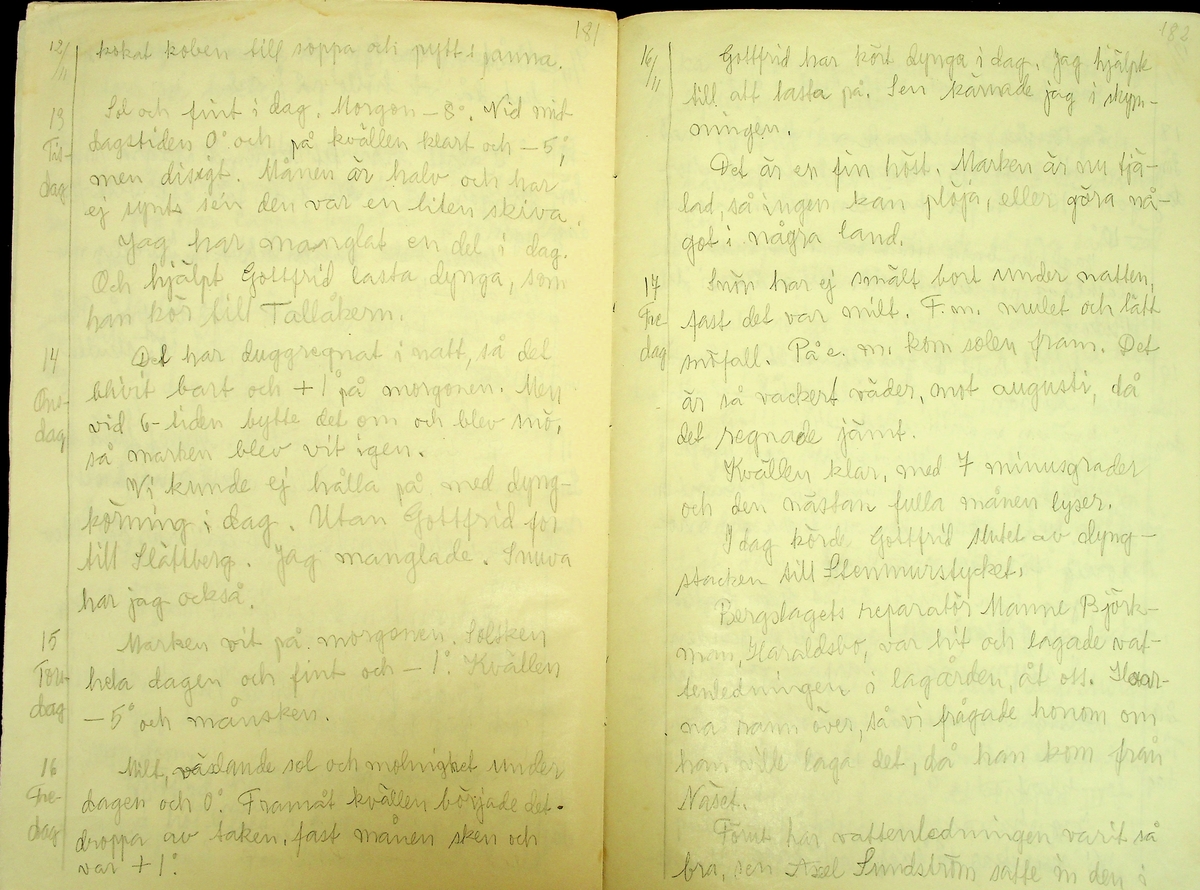 181
12/11 kokat koben till soppa och pytt i panna.
13 Sol och fint i dag. Morgon -8°. Vid mid-
Tis- dagstiden 0° och på kvällen klart och -5°,
dag men disigt. Månen är halv och har
ej synts sen den var en liten skiva.
Jag har manglat en del i dag.
Och hjälpt Gottfrid lasta dynga, som
han kör till Tallåkern.
14 Det har duggregnat i natt, så det
Ons- blivit bart och +1° på morgonen. Men
dag vid 6-tiden bytte det om och blev snö,
så marken blev vit igen.
Vi kunde ej hålla på med dyng-
körning i dag. Utan Gottfrid for
till Slättberg. Jag manglade. Snuva
har jag också.
15 Marken vit på morgonen. Solsken
Tors- hela dagen och fint och -1°. Kvällen
dag -5° och månsken.
16 Milt, växlande sol och molnighet under
Fre- dagen och 0°. Framåt kvällen började det
dag droppa av taken, fast månen sken och
var +1°.
182
16/11 Gottfrid har kört dynga i dag. Jag hjälpt
till att lasta på. Sen kärnade jag i skym-
ningen.
Det är en fin höst. Marken är nu tjä-
lad, så ingen kan plöja, eller göra nå-
got i några land.
17 Snön har ej smält bort under natten,
Fre- fast det var milt. F.m. mulet och lätt
dag snöfall. På e.m. kom solen fram. Det
är så vackert väder, mot augusti, då
det regnade jämt.
Kvällen klar, med 7 minusgrader
och den nästan fulla månen lyser.
I dag körde Gottfrid slutet av dyng-
stacken till Stenmurstycket.
Bergslagets reparatör Manne Björk-
man, Haraldsbo, var hit och lagade vat-
tenledningen i lagården, åt oss. Hoar-
na rann över, så vi frågade honom om
han ville laga det, då han kom från
Näset.
Förut har vattenledningen varit så
bra, sen Axel Sundström satte in den i